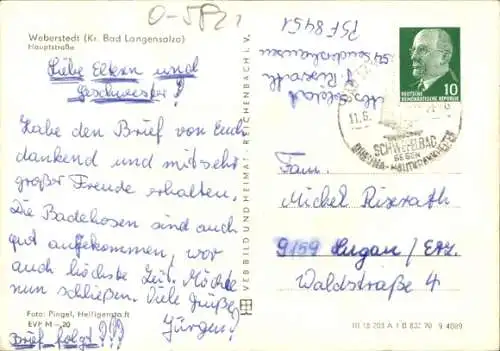 O-5821
Weberstedt (Kr. Bad Langensalza)
Hauptstraße
Liebe Eltern und
Geschwister!
Habe den Brief von Euch
dankend und mit sehr
großer Freude erhalten.
Die Badehosen sind auch
gut angekommen, war
auch höchste Zeit. Möchte
nun schließen. Viele Grüße
Jürgen!
Foto: Pingel, Heiligenstadt
EVP M -,20
Brief folgt!!!
VEB BILD UND HEIMAT · REICHENBACH I. V.
Abs. Soldat
J. Rixrath
54 Sondershausen
PSF 8451
10
DEUTSCHE
DEMOKRATISCHE REPUBLIK
11.6.
SCHWEFELBAD
GEGEN
RHEUMA-HAUTKRANKHEITEN
Fam.
Michel Rixrath
9159 Lugau/Erz.
Waldstraße 4
III 18 203 A 1 B 832 70 9 4089